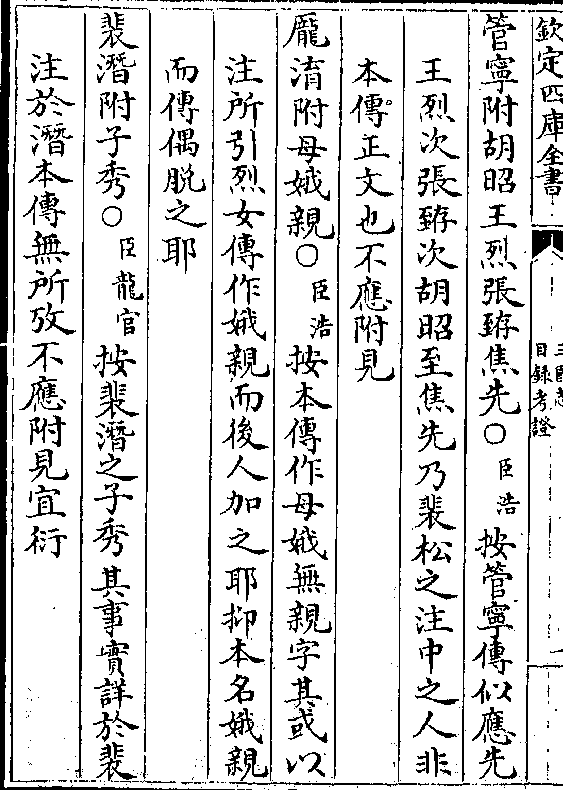 欽定四庫全書
三國志
目録考證
管寧附胡昭王烈張臶焦先○臣浩按管寧傳似應先
王烈次張臶次胡昭至焦先乃裴松之注中之人非
本傳正文也不應附見
龐淯附母娥親○臣浩按本傳作母娥無親字其或以
注所引烈女傳作娥親而後人加之耶抑本名娥親
而傳偶脱之耶
裴潛附子秀○臣龍官按裴潛之子秀其事實詳於裴
注於潛本傳無所攷不應附見宜衍